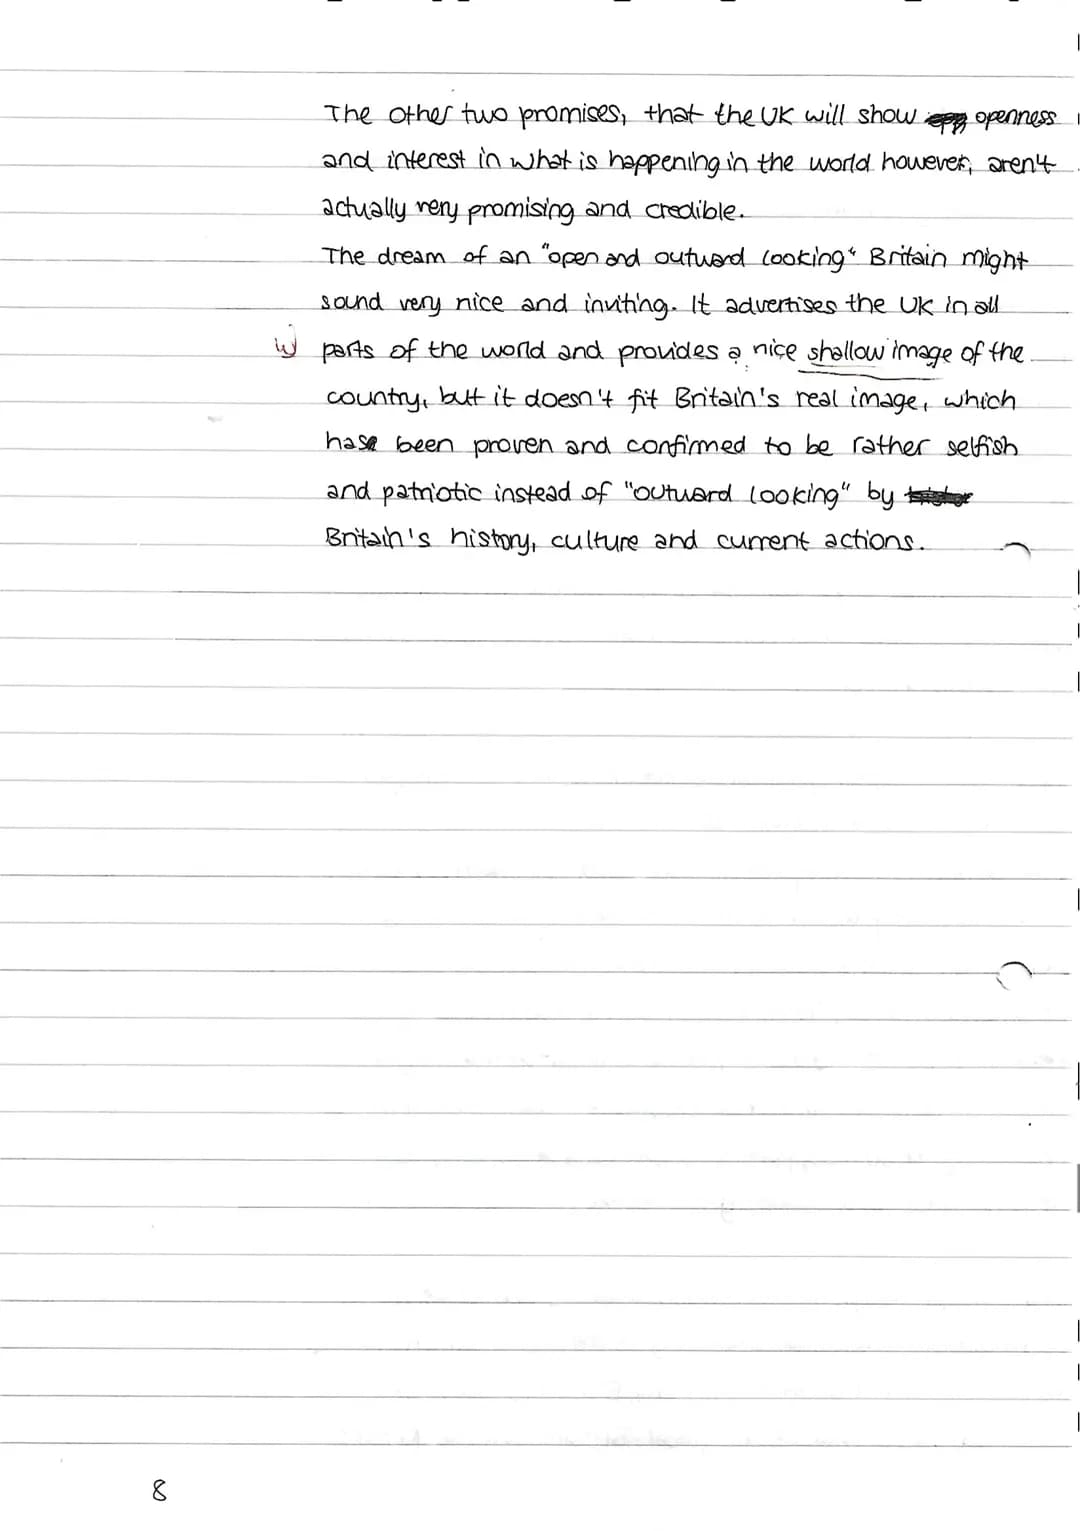 The other two promises, that the UK will show openness
and interest in what is happening in the world however, aren't
actually very promising and credible.
The dream of an "open and outward looking" Britain might
sound very nice and inviting. It advertises the UK in all
parts of the world and provides a nice shallow image of the
country, but it doesn't fit Britain's real image, which
has been proven and confirmed to be rather selfish
and patriotic instead of "outward looking" by
Britain's history, culture and current actions.
8